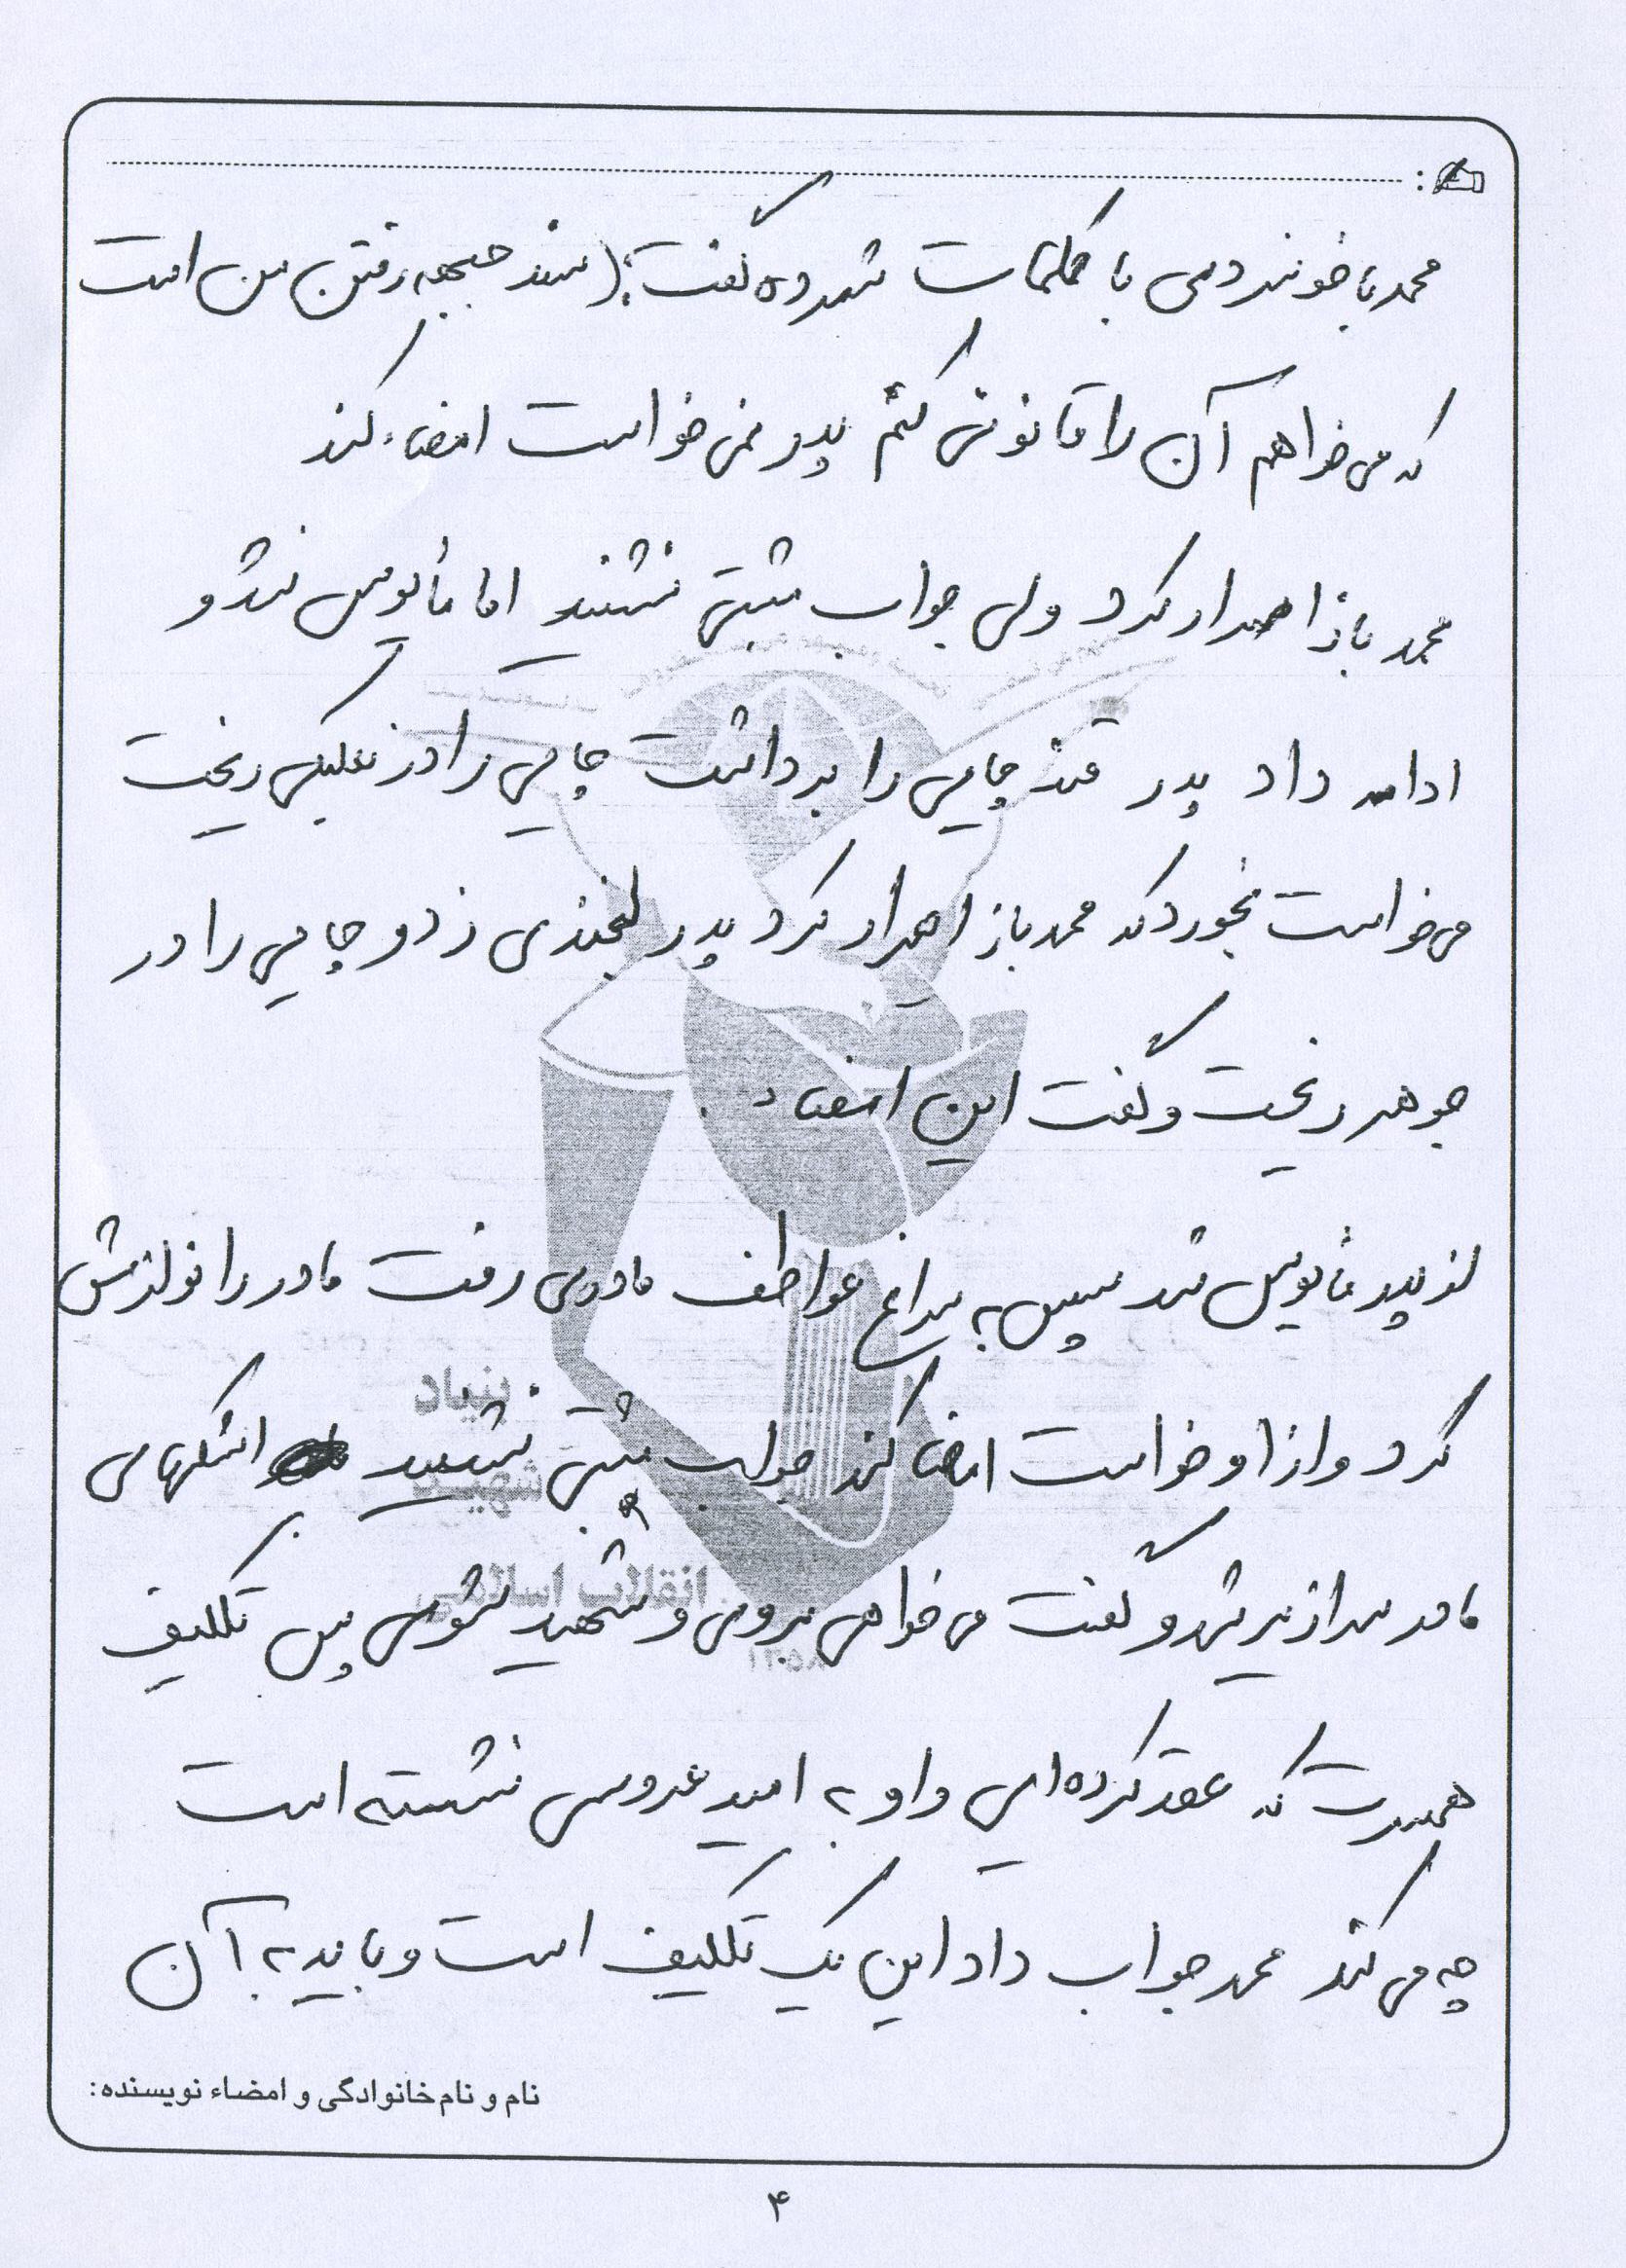 محمد با خونسردی با کلمات شمرده گفت: (سند جبهه رفتن من است
که می خواهم آن را قانونی کنم پدر نمی خواست امضاء کند
محمد باز اصرار کرد ولی جواب مثبتی نشنید اما مأیوس نشد و
ادامه داد پدر قند چایی را برداشت چایی را در نعلبکی ریخت
می خواست بخورد که محمد باز اصرار کرد پدر لبخندی زد و چایی را در
جوهر ریخت و گفت این امضاء .
از پدر مأیوس شد سپس به سراغ عواطف مادری رفت مادر را نوازش
کرد و از او خواست امضا کند جواب مثبتی نشنید اشکهای
مادر سرازیر شد و گفت می خواهی بروی و شهید شوی پس تکلیف
همسرت که عقد کرده ای و او به امید عروسی نشسته است
چه می کند محمد جواب داد این یک تکلیف است و باید به آن
بنیاد
شهید
انقلاب اسلامی
۱۳۵۸
نام و نام خانوادگی و امضاء نویسنده:
۴